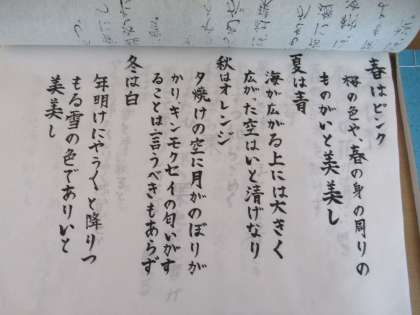 春はピンク
桜の色や、春の身の周りの
ものがいと美美し
夏は青
海が広がる上には大きく
広がった空はいと清げなり
秋はオレンジ
夕焼けの空に月がのぼりが
かり、キンモクセイの匂いがす
ることは言うべきもあらず
冬は白
年明けにやうくと降りつ
もる雪の色でありいと
美美し